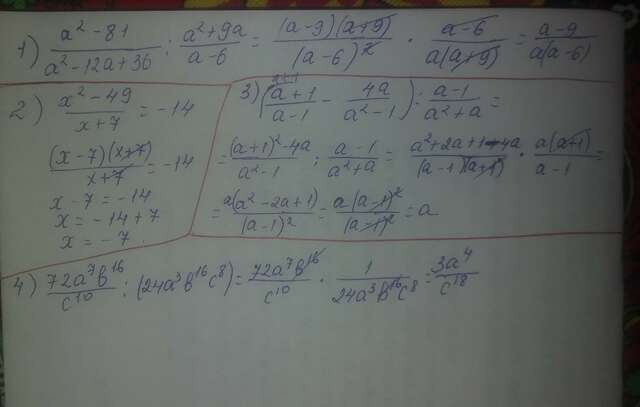 1) (a² - 81)/(a² - 12a + 36) : (a² + 9a)/(a - 6) = ((a - 9)(a + 9))/(a - 6)² · (a - 6)/(a(a + 9)) = (a - 9)/(a(a - 6))
2) (x² - 49)/(x + 7) = -14
((x - 7)(x + 7))/(x + 7) = -14
x - 7 = -14
x = -14 + 7
x = -7
3) ((a + 1)/(a - 1) - 4a/(a² - 1)) : (a - 1)/(a² + a) =
= ((a + 1)² - 4a)/(a² - 1) : (a - 1)/(a² + a) = (a² + 2a + 1 - 4a)/((a - 1)(a + 1)) · (a(a + 1))/(a - 1) =
= (a(a² - 2a + 1))/(a - 1)² = (a(a - 1)²)/(a - 1)² = a
4) (72a⁷b¹⁶)/c¹⁰ : (24a³b¹⁶c⁸) = (72a⁷b¹⁶)/c¹⁰ · 1/(24a³b¹⁶c⁸) = 3a⁴/c¹⁸